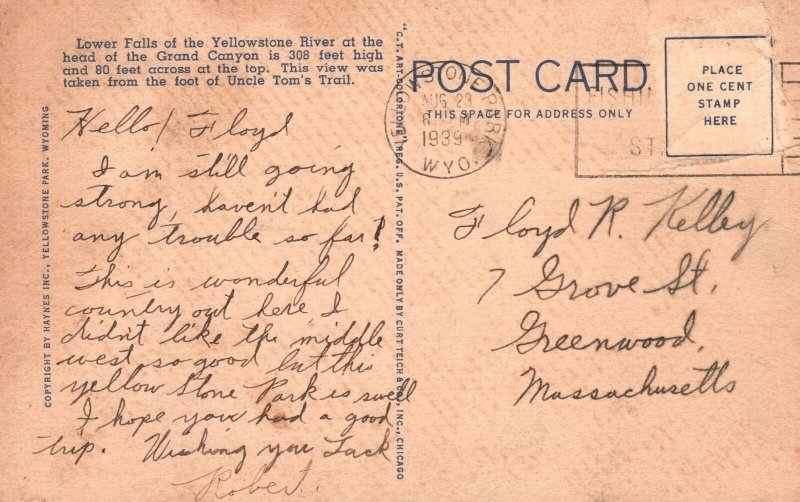 Lower Falls of the Yellowstone River at the
head of the Grand Canyon is 308 feet high
and 80 feet across at the top. This view was
taken from the foot of Uncle Tom's Trail.
Hello! Floyd
I am still going
strong, haven't had
any trouble so far!
This is wonderful
country out here I
didn't like the middle
west so good but this
yellow Stone Park is swell
I hope you had a good
trip. Wishing you Luck
Robert.
COPYRIGHT BY HAYNES INC., YELLOWSTONE PARK, WYOMING
"C.T. ART-COLORTONE" REG. U.S. PAT. OFF. MADE ONLY BY CURT TEICH & CO., INC., CHICAGO
POST CARD
THIS SPACE FOR ADDRESS ONLY
AUG 23
1939
WYO.
PLACE
ONE CENT
STAMP
HERE
Floyd R. Kelley
7 Grove St.
Greenwood,
Massachusetts